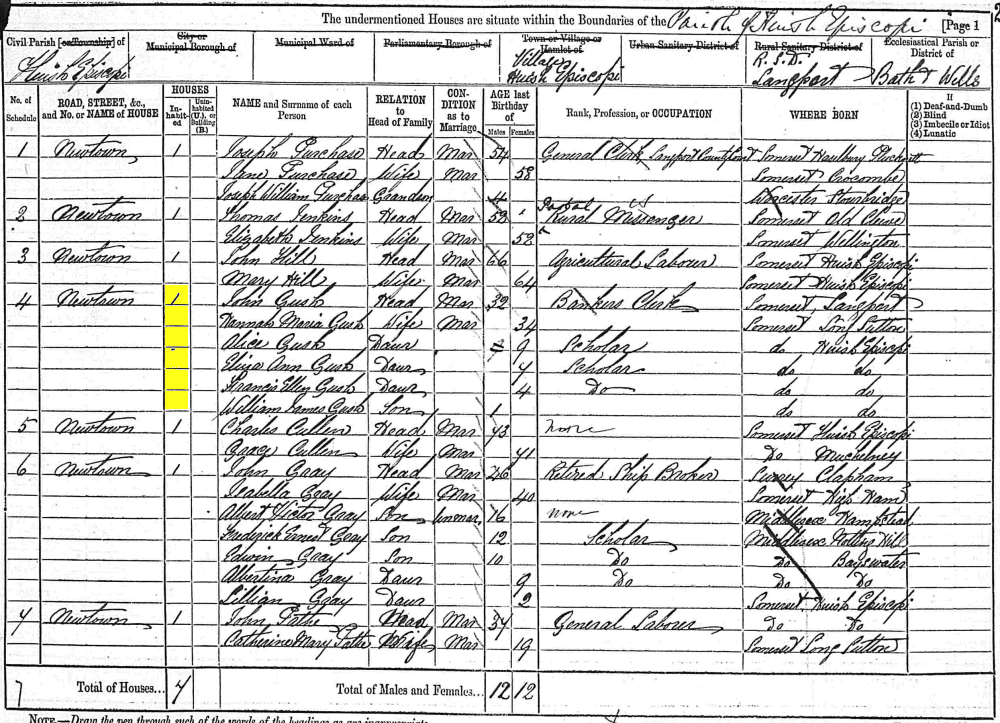 The undermentioned Houses are situate within the Boundaries of the Parish of Huish Episcopi [Page 1
Civil Parish [or Township] of
Huish Episcopi
City or
Municipal Borough of
Municipal Ward of
Parliamentary Borough of
Town or Village or
Hamlet of
Village
Huish Episcopi
Urban Sanitary District of
Rural Sanitary District of
R. S. D.
Langport
Ecclesiastical Parish or
District of
Bath & Wells
No. of
Schedule
ROAD, STREET, &c.,
and No. or NAME of HOUSE
HOUSES
In-
habit-
ed
Unin-
habited
(U.), or
Building
(B.)
NAME and Surname of each
Person
RELATION
to
Head of Family
CON-
DITION
as to
Marriage
AGE last
Birthday
of
Males Females
Rank, Profession, or OCCUPATION
WHERE BORN
If
(1) Deaf-and-Dumb
(2) Blind
(3) Imbecile or Idiot
(4) Lunatic
1 Newtown 1 Joseph Purchase Head Mar 54 General Clerk Langport Somerset Haslbury
Jane Purchase Wife Mar 58 Somerset Crocombe
Joseph William Purchase Grandson 4 Worcester Stourbridge
2 Newtown 1 Thomas Jenkins Head Mar 52 Postal Rural Messenger Somerset Old Cleve
Elizabeth Jenkins Wife Mar 52 Somerset Wellington
3 Newtown 1 John Hill Head Mar 66 Agricultural Labourer Somerset Huish Episcopi
Mary Hill Wife Mar 64 Somerset Huish Episcopi
4 Newtown 1 John Gush Head Mar 32 Bankers Clerk Somerset Langport
Hannah Maria Gush Wife Mar 34 Somerset Long Sutton
Alice Gush Daur 9 Scholar do Huish Episcopi
Eliza Ann Gush Daur 7 Scholar do do
Francis Ellen Gush Daur 4 Do do do
William James Gush Son 1 do do
5 Newtown 1 Charles Cullen Head Mar 43 none Somerset Huish Episcopi
Grace Cullen Wife Mar 41 Do Muchelney
6 Newtown 1 John Gray Head Mar 46 Retired Ship Broker Surrey Clapham
Isabella Gray Wife Mar 40 Somerset High Ham
Albert Victor Gray Son Unmar 16 none Middlesex Hampstead
Frederick Ernest Gray Son 12 Scholar Middlesex Notting Hill
Edwin Gray Son 10 Do Do Bayswater
Albertina Gray Daur 9 Do Do Do
Lillian Gray Daur 2 Somerset Huish Episcopi
7 Newtown 1 John Pathe Head Mar 34 General Labourer Do Do
Catherine Mary Pathe Wife Mar 19 Somerset Long Sutton
7 Total of Houses... 7 Total of Males and Females... 12 12
NOTE.—Draw the pen through such of the words of the headings as are inappropriate.